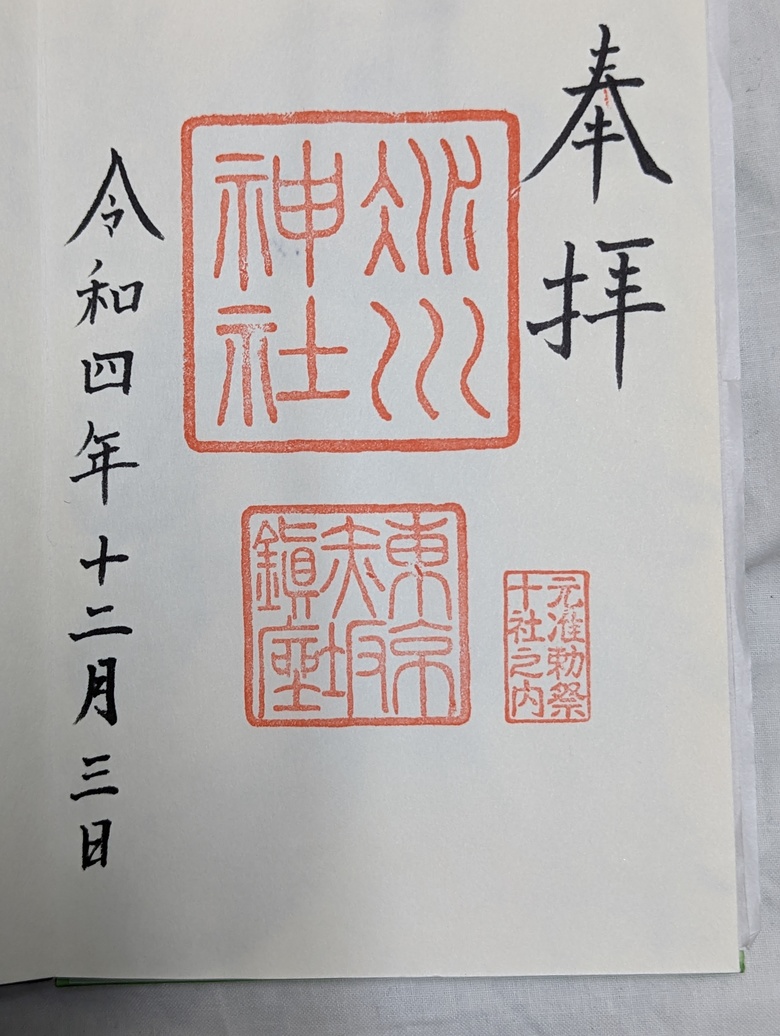 奉拝
氷川
神社
東京
赤坂
鎮座
元准勅祭
十社之内
令和四年十二月三日